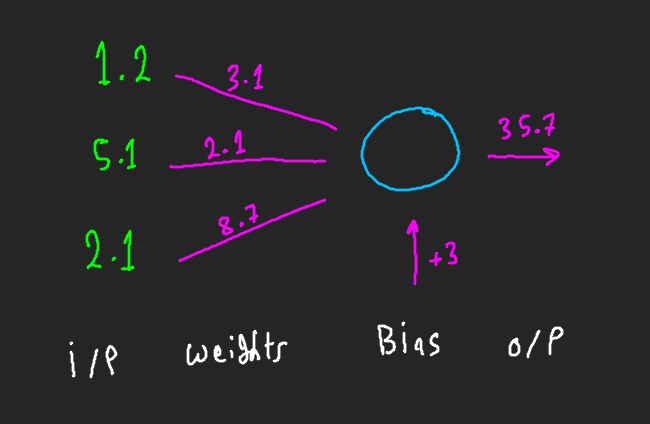 1.2 3.1
5.1 2.1 35.7
2.1 8.7 +3
i/P weights Bias o/P